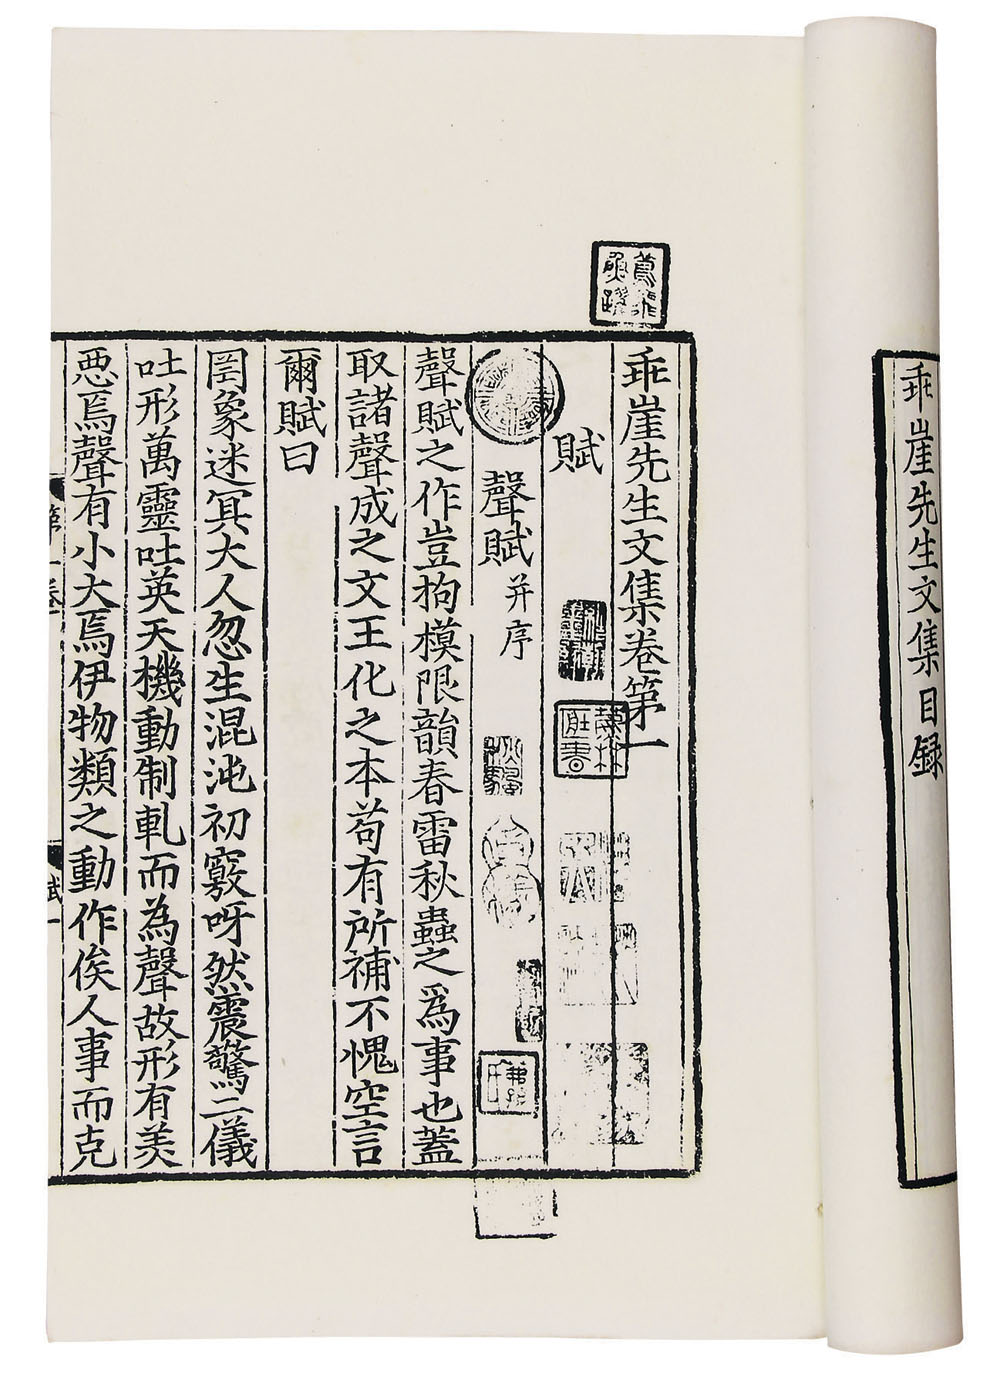 乖崖先生文集目録
乖崖先生文集卷第一
賦
聲賦并序
聲賦之作豈拘模限韻春雷秋蟲之爲事也蓋
取諸聲成之文王化之本苟有所補不愧空言
爾賦曰
罔象迷冥大人忽生混沌初竅呀然震驚二儀
吐形萬靈吐英天機動制軋而為聲故形有美
惡焉聲有小大焉伊物類之動作俟人事而克
第一卷
賦一